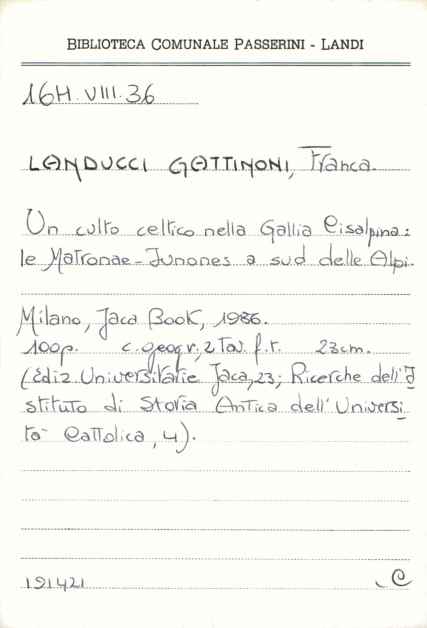 BIBLIOTECA COMUNALE PASSERINI - LANDI
16H.VIII.36
LANDUCCI GATTINONI, Franca.
Un culto celtico nella Gallia Cisalpina:
le Matronae-Junones a sud delle Alpi.
Milano, Jaca Book, 1986.
100p. c.geogr., 2 Tav. f.t. 23cm.
(Ediz. Universitarie Jaca, 23; Ricerche dell'I
stituto di Storia Antica dell'Universi
tà Cattolica, 4).
191421 C